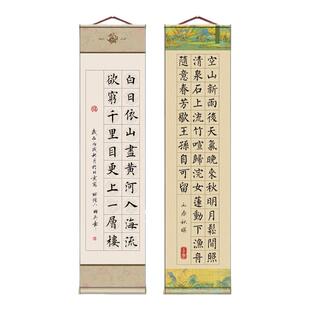 白日依山盡黃河入海流
欲窮千里目更上一層樓
空山新雨後天氣晚來秋明月鬆間照
清泉石上流竹喧歸浣女蓮動下漁舟
隨意春芳歇王孫自可留
山居秋暝